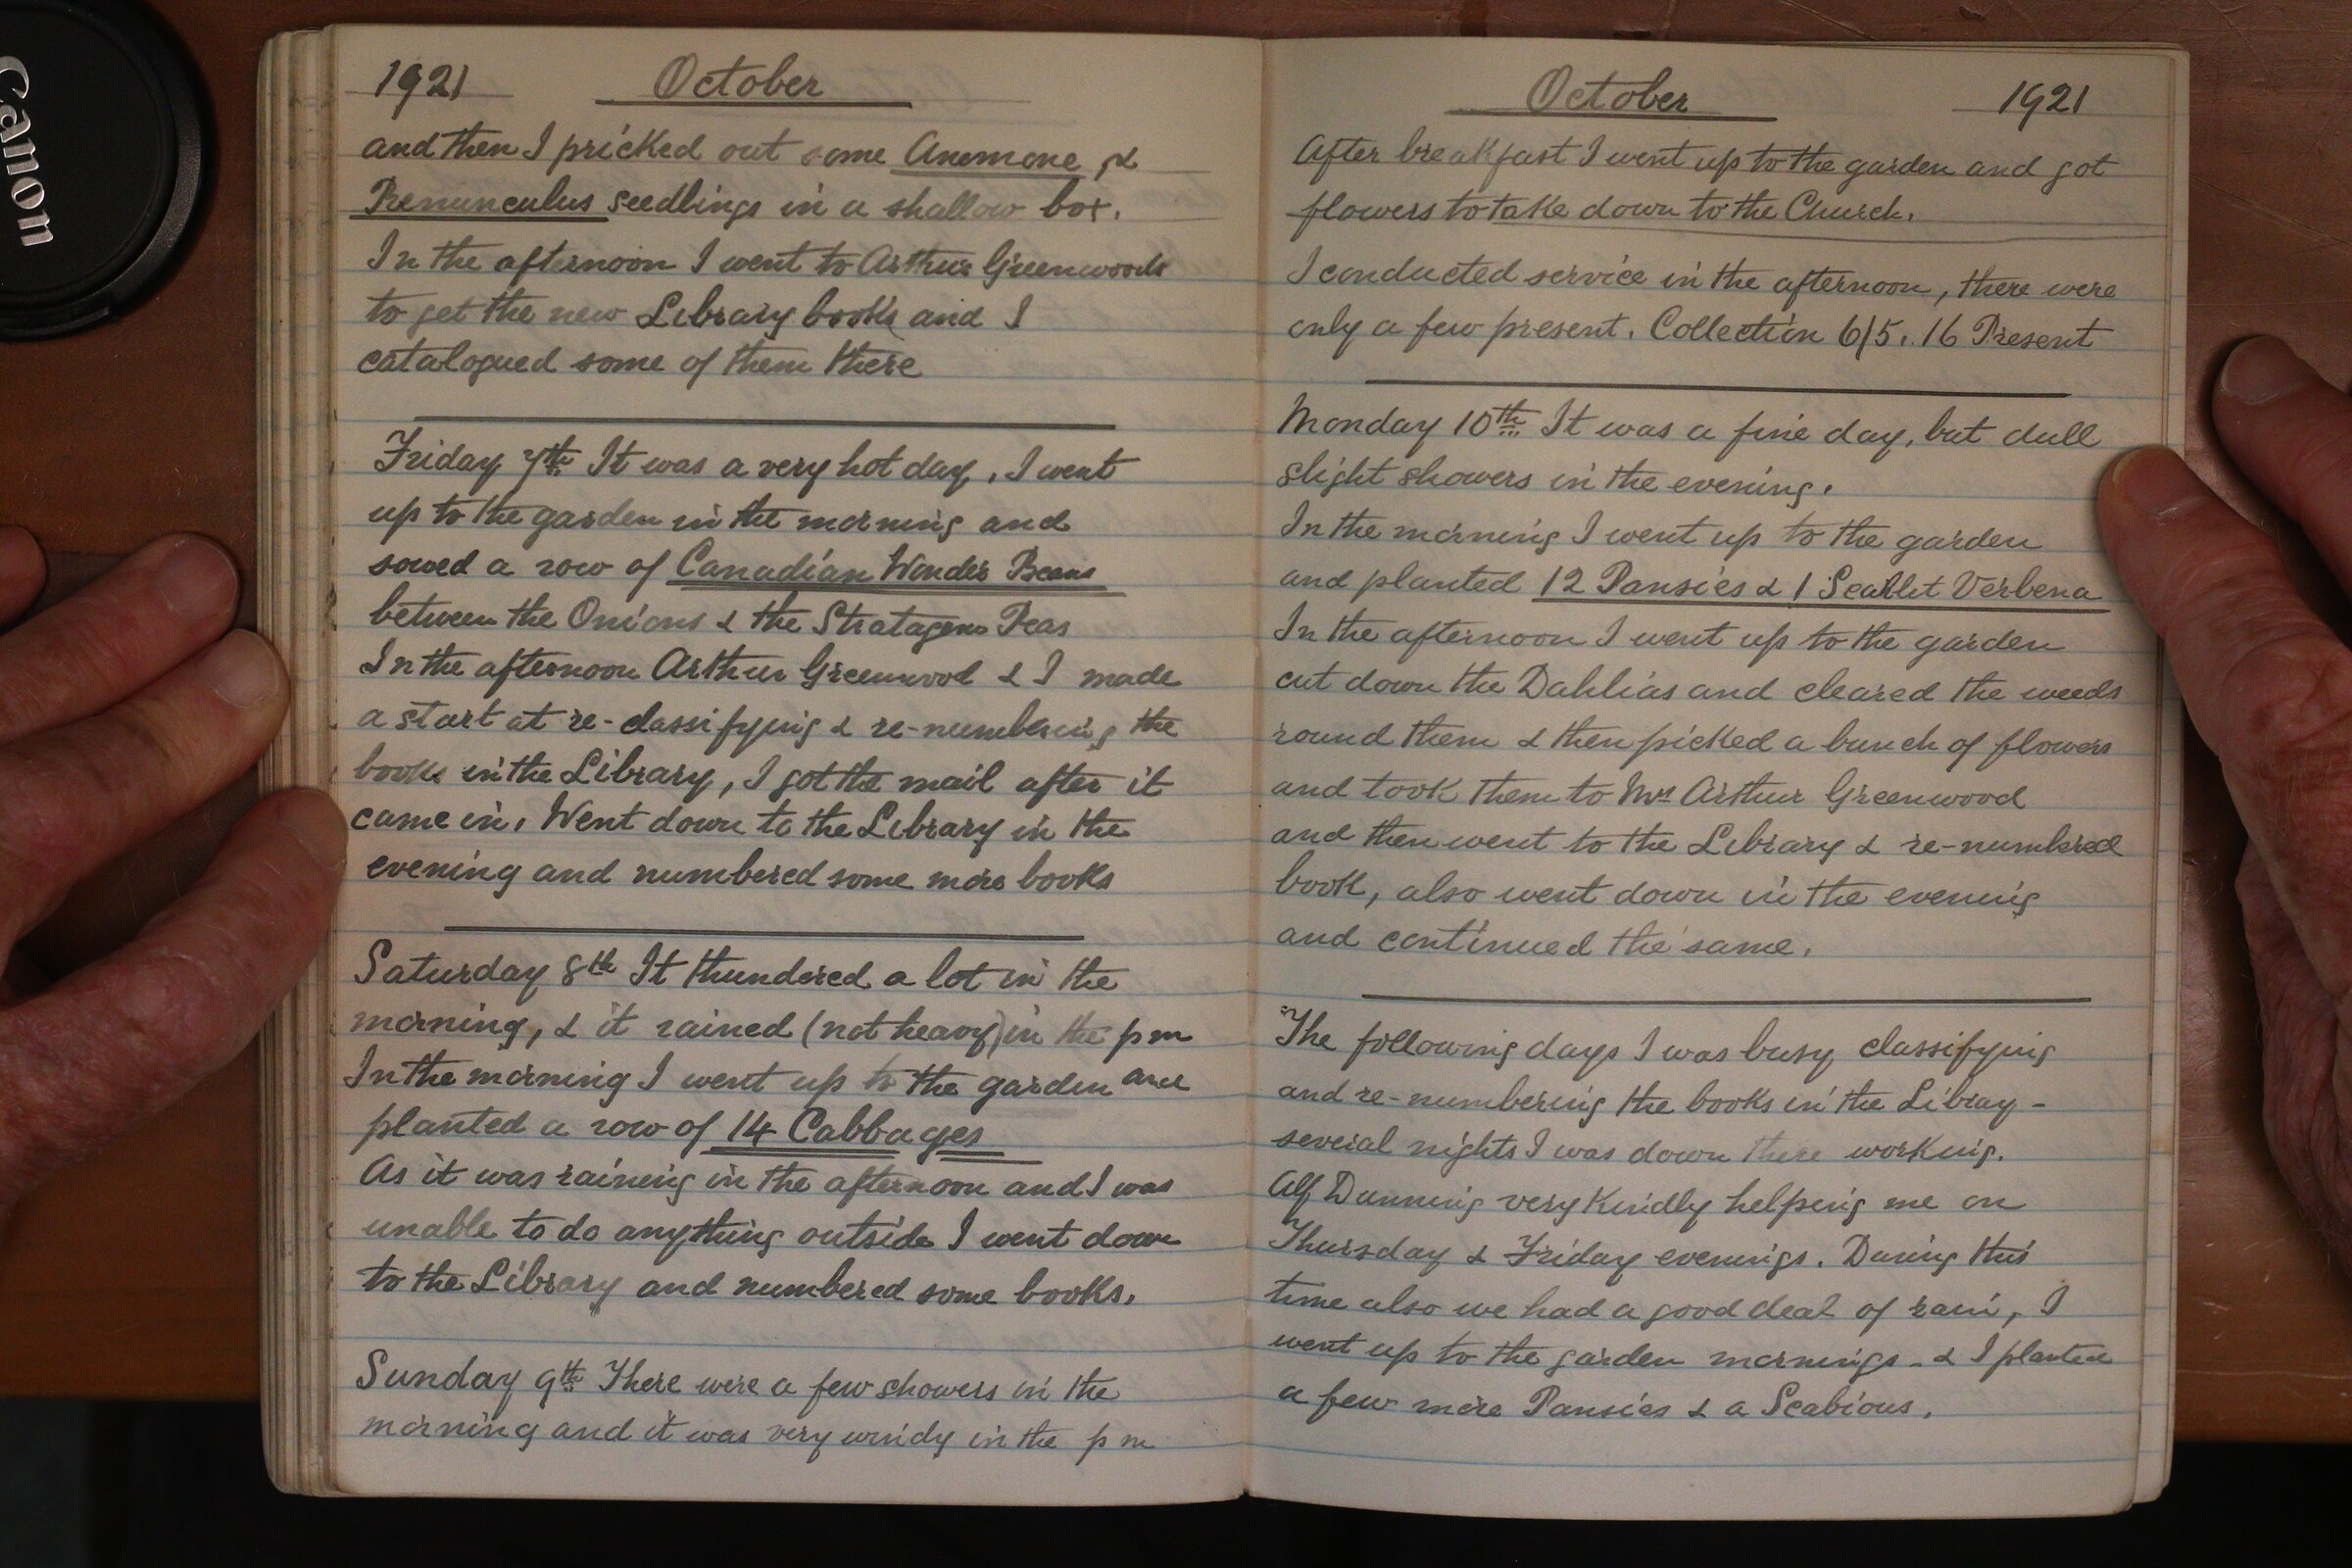 Canon
1921 October
and then I pricked out some Anemone &
Renunculus seedlings in a shallow box.
In the afternoon I went to Arthur Greenwoods
to get the new Library books and I
catalogued some of them there
Friday 7th It was a very hot day, I went
up to the garden in the morning and
sowed a row of Canadian Wonder Beans
between the Onions & the Stratagem Peas
In the afternoon Arthur Greenwood & I made
a start at re-classifying & re-numbering the
books in the Library, I got the mail after it
came in. Went down to the Library in the
evening and numbered some more books
Saturday 8th It thundered a lot in the
morning, & it rained (not heavy) in the pm
In the morning I went up to the garden and
planted a row of 14 Cabbages
As it was raining in the afternoon and I was
unable to do anything outside I went down
to the Library and numbered some books.
Sunday 9th There were a few showers in the
morning and it was very windy in the pm
October 1921
After breakfast I went up to the garden and got
flowers to take down to the Church.
I conducted service in the afternoon, there were
only a few present. Collection 6/5. 16 Present
Monday 10th It was a fine day, but dull
slight showers in the evening.
In the morning I went up to the garden
and planted 12 Pansies & 1 Scarlet Verbena
In the afternoon I went up to the garden
cut down the Dahlias and cleared the weeds
round them & then picked a bunch of flowers
and took them to Mrs Arthur Greenwood
and then went to the Library & re-numbered
book, also went down in the evening
and continued the same.
The following days I was busy classifying
and re-numbering the books in the Libray -
several nights I was down there working.
Alf Dunning very kindly helping me on
Thursday & Friday evenings. During this
time also we had a good deal of rain, I
went up to the garden mornings - & I planted
a few more Pansies & a Scabious.